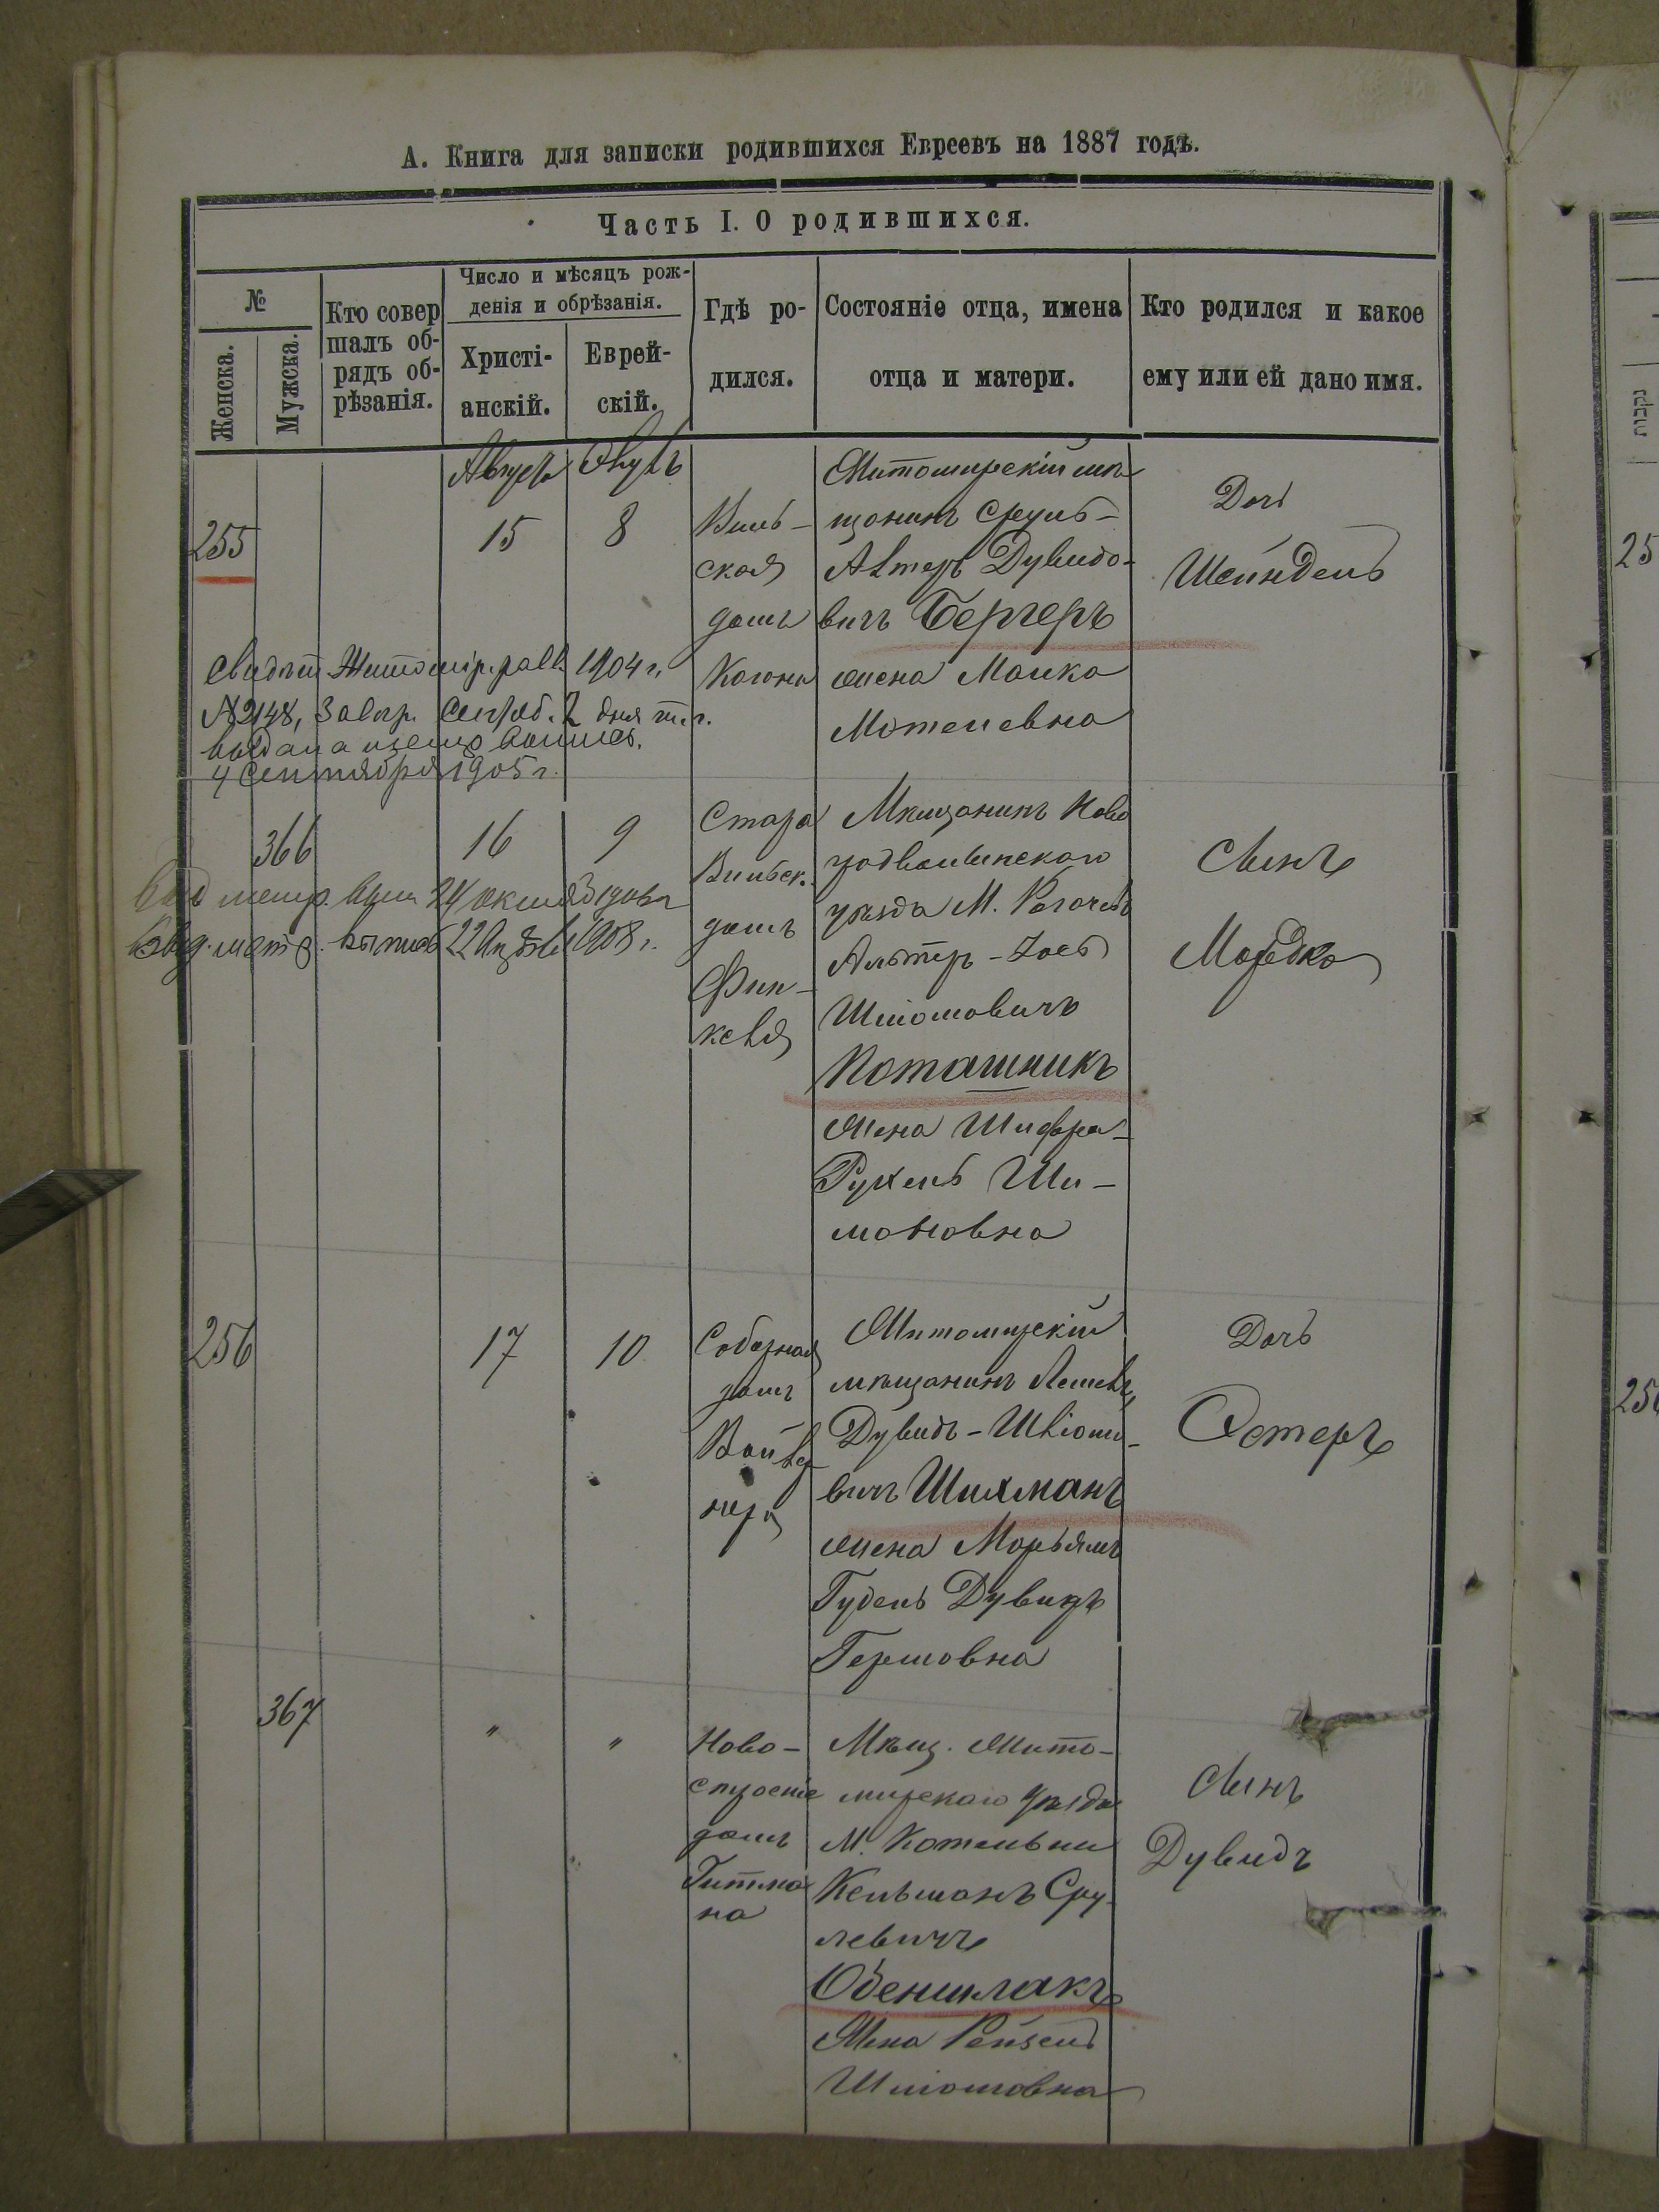 А. Книга для записки родившихся Евреевъ на 1887 годъ.
Часть I. О родившихся.
№
Женска.
Мужска.
Кто совер
шалъ об-
рядъ об-
рѣзанія.
Число и мѣсяцъ рож-
денія и обрѣзанія.
Христі-
анскій.
Еврей-
скій.
Гдѣ ро-
дился.
Состояніе отца, имена
отца и матери.
Кто родился и какое
ему или ей дано имя.
255
Августъ
15
8
Виль-
ская
домъ
Когона
Житомирскій мѣ
щанинъ Сруль-
Алтеръ Дувидо-
вичъ Бергеръ
жена Малка
Мотелевна
Дочь
Шейндель
Свидѣт. Житомір. равв. 1904 г.
№ 2148, 2 дня т. г.
выдана выпись.
4 Сентября 1905 г.
366
16
9
Стара
Вильск.
домъ
Фин-
келя
Мѣщанинъ Ново
градволынскаго
уѣзда М. Рогачевъ
Альтеръ-Іось
Шліомовичъ
Поташникъ
жена Шифра-
Рухель Ши-
моновна
Сынъ
Мордко
метр. вып. 24
Выд. метр. выпись 22 1908 г.
256
17
10
Соборная
домъ
Житомирскій
мѣщанинъ
Дувидъ-Шліомо-
вичъ Шихманъ
жена Марьямъ
Гудель Дувидъ
Гершовна
Дочь
Эстеръ
367
"
"
Ново-
строеніе
домъ
Гитма
на
Мѣщ. Жито-
мирскаго уѣзда
М. Котельни
Кельманъ Сру-
левичъ
Обеншлакъ
Жена Рейзель
Шліомовна
Сынъ
Дувидъ
נקבות
25
256